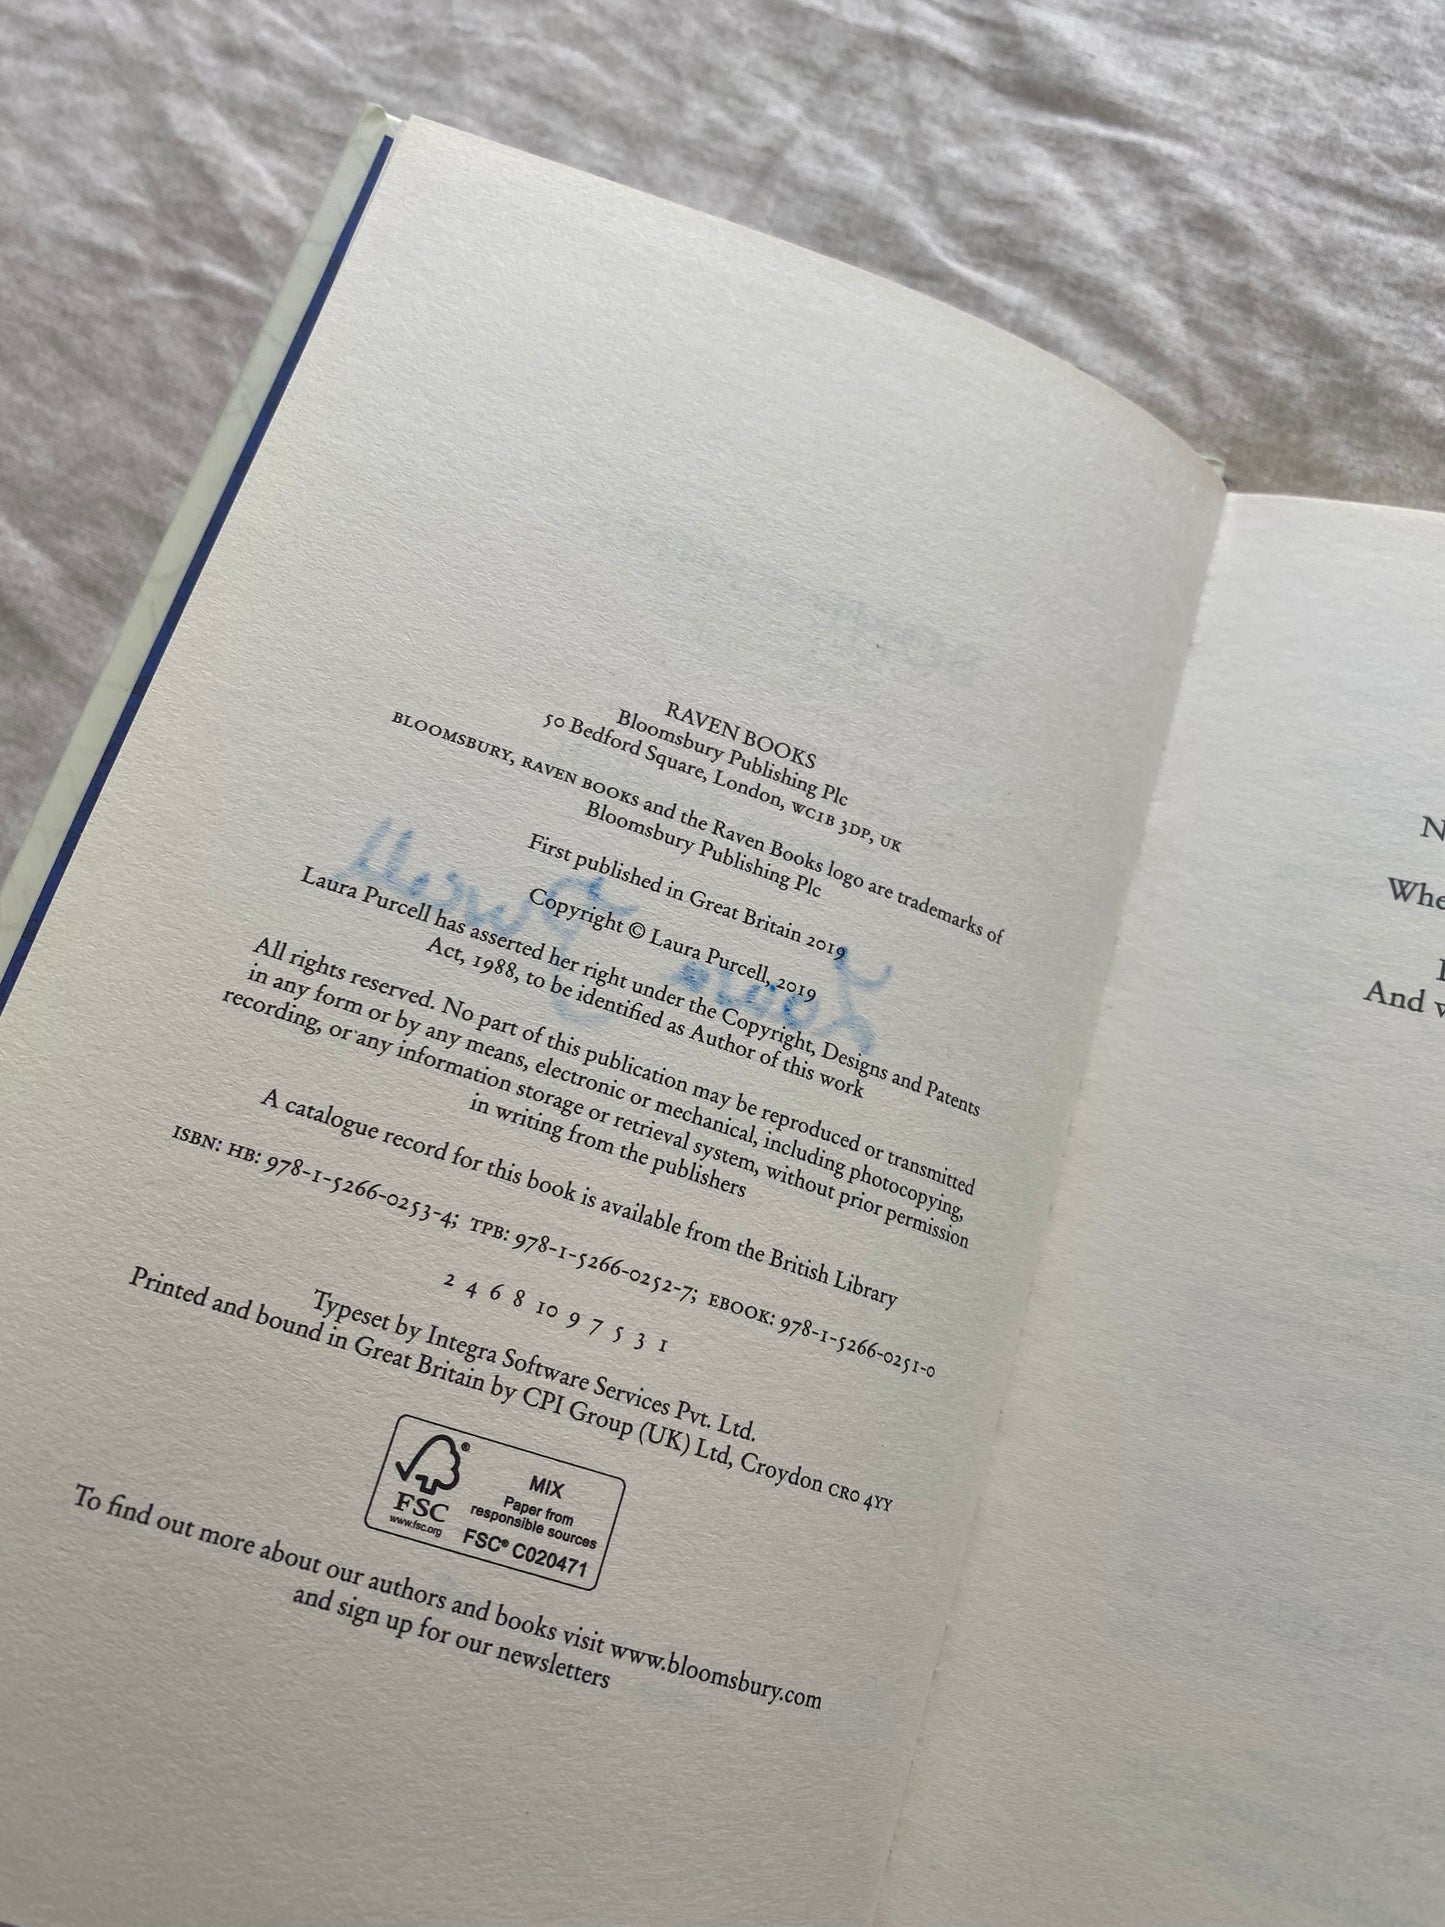 RAVEN BOOKS
Bloomsbury Publishing Plc
50 Bedford Square, London, WC1B 3DP, UK
BLOOMSBURY, RAVEN BOOKS and the Raven Books logo are trademarks of
Bloomsbury Publishing Plc
First published in Great Britain 2019
Copyright © Laura Purcell, 2019
Laura Purcell has asserted her right under the Copyright, Designs and Patents
Act, 1988, to be identified as Author of this work
All rights reserved. No part of this publication may be reproduced or transmitted
in any form or by any means, electronic or mechanical, including photocopying,
recording, or any information storage or retrieval system, without prior permission
in writing from the publishers
A catalogue record for this book is available from the British Library
ISBN: HB: 978-1-5266-0253-4; TPB: 978-1-5266-0252-7; EBOOK: 978-1-5266-0251-0
2 4 6 8 10 9 7 5 3 1
Typeset by Integra Software Services Pvt. Ltd.
Printed and bound in Great Britain by CPI Group (UK) Ltd, Croydon CR0 4YY
FSC®
www.fsc.org
MIX
Paper from
responsible sources
FSC® C020471
To find out more about our authors and books visit www.bloomsbury.com
and sign up for our newsletters
And